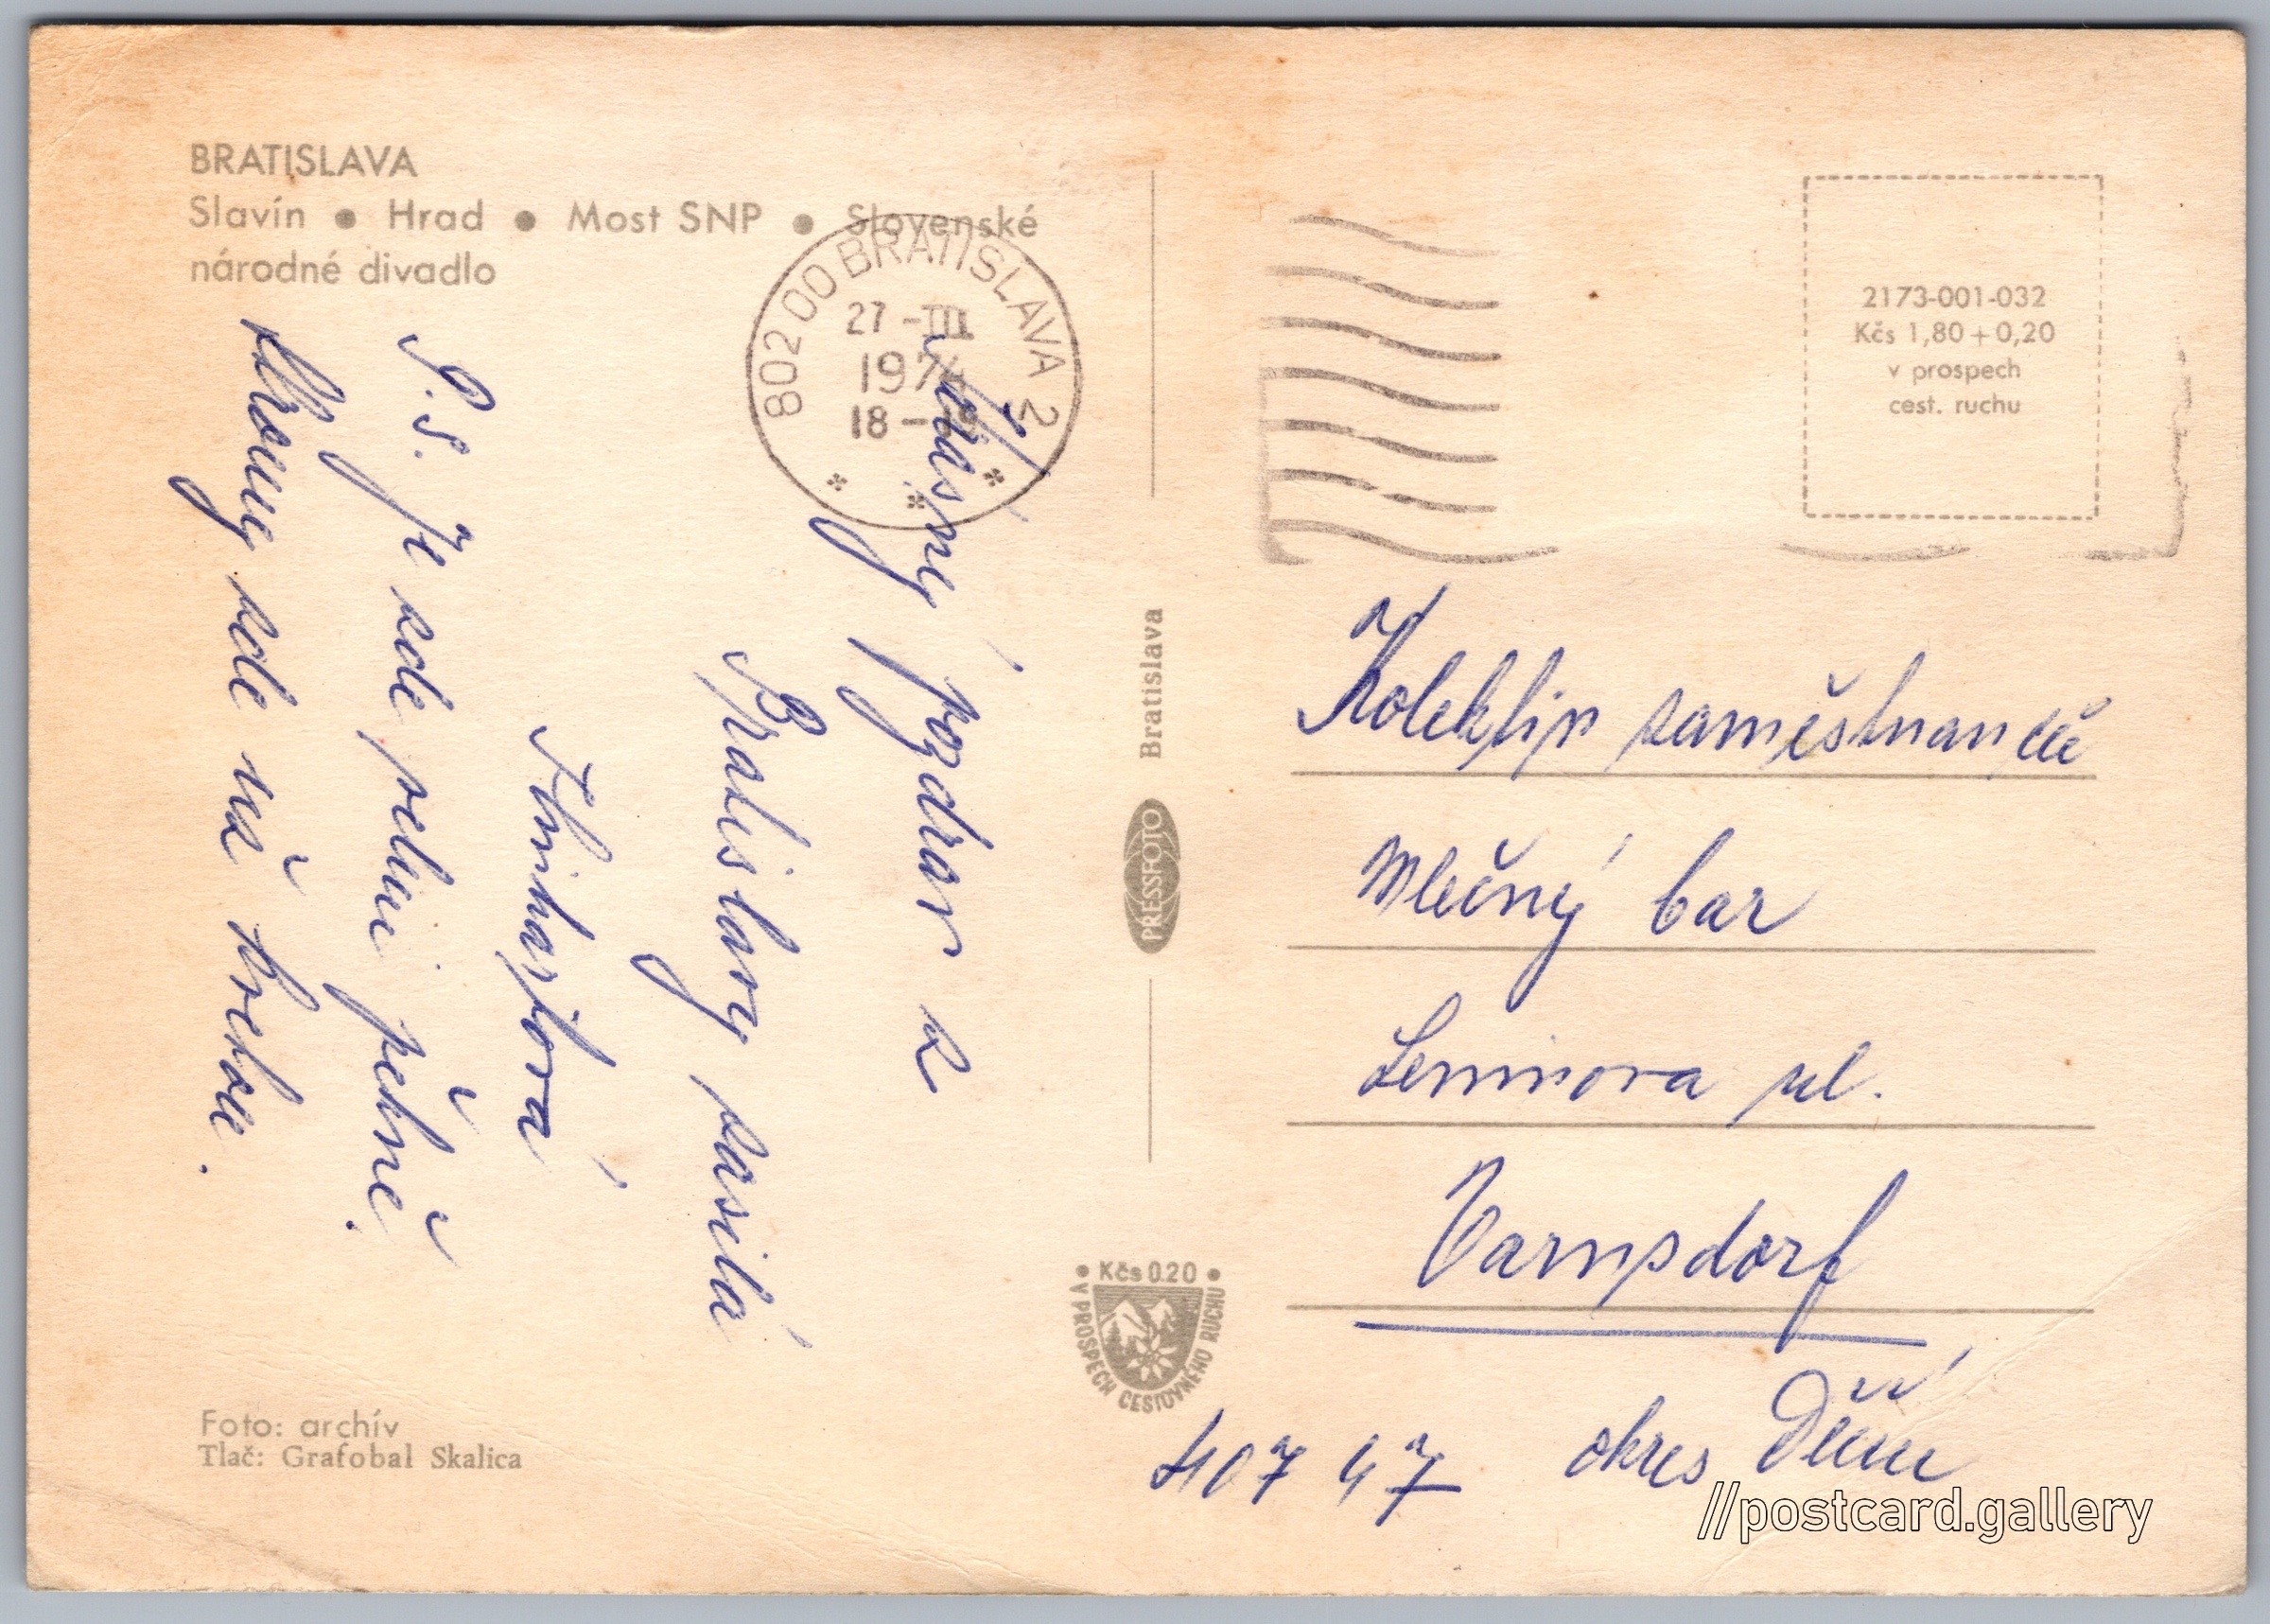 BRATISLAVA
Slavín ● Hrad ● Most SNP ● Slovenské
národné divadlo
802 00 BRATISLAVA 2
27 -III
197
18 -
pozdrav z
Bratislavy zasílá
P.S. Je zde velmi pěkně.
zde na
Foto: archív
Tlač: Grafobal Skalica
Bratislava
PRESSFOTO
Kčs 0.20
V PROSPECH CESTOVNÉHO RUCHU
2173-001-032
Kčs 1,80 + 0,20
v prospech
cest. ruchu
Kolektiv zaměstnanců
Mléčný bar
Leninova ul.
Varnsdorf
407 47 okres Děčín
//postcard.gallery